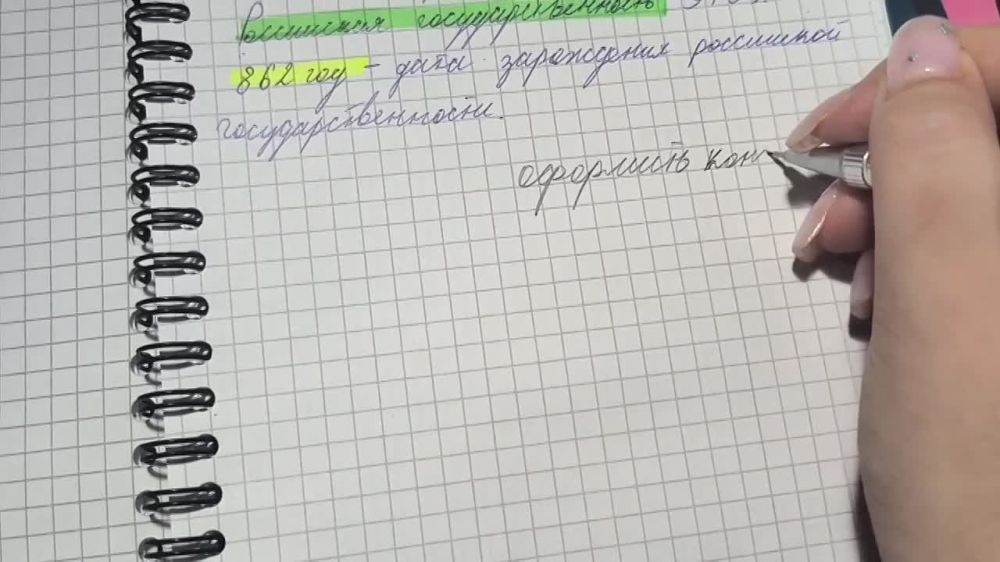 Российская государственность
862 год - дата зарождения российской
государственности.
оформить кон